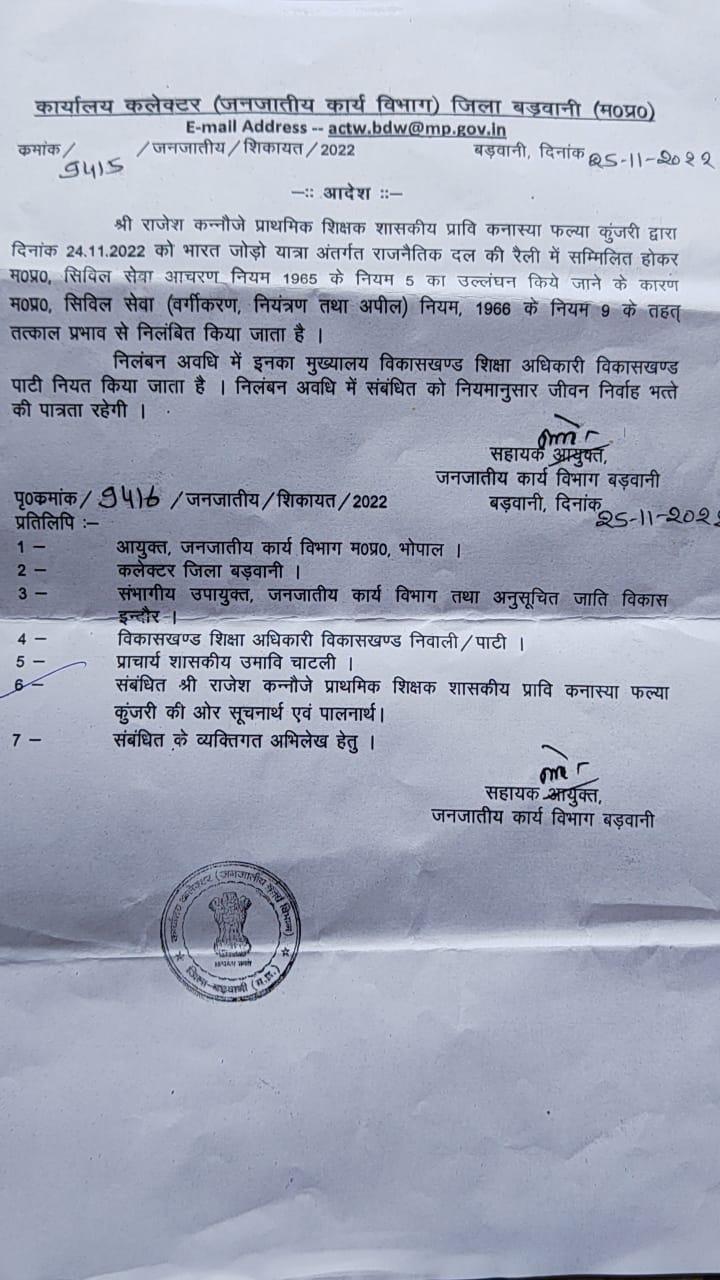 कार्यालय कलेक्टर (जनजातीय कार्य विभाग) जिला बड़वानी (म०प्र०)
E-mail Address -- actw.bdw@mp.gov.in
कमांक/ 9415 /जनजातीय/शिकायत/2022 बड़वानी, दिनांक 25-11-2022
-:: आदेश ::-
श्री राजेश कन्नौजे प्राथमिक शिक्षक शासकीय प्रावि कनास्या फल्या कुंजरी द्वारा
दिनांक 24.11.2022 को भारत जोड़ो यात्रा अंतर्गत राजनैतिक दल की रैली में सम्मिलित होकर
म०प्र०, सिविल सेवा आचरण नियम 1965 के नियम 5 का उल्लंघन किये जाने के कारण
म०प्र०, सिविल सेवा (वर्गीकरण, नियंत्रण तथा अपील) नियम, 1966 के नियम 9 के तहत्
तत्काल प्रभाव से निलंबित किया जाता है ।
निलंबन अवधि में इनका मुख्यालय विकासखण्ड शिक्षा अधिकारी विकासखण्ड
पाटी नियत किया जाता है । निलंबन अवधि में संबंधित को नियमानुसार जीवन निर्वाह भत्ते
की पात्रता रहेगी ।
सहायक आयुक्त,
जनजातीय कार्य विभाग बड़वानी
पृ०कमांक/ 9416 /जनजातीय/शिकायत/2022 बड़वानी, दिनांक 25-11-2022
प्रतिलिपि :–
1 – आयुक्त, जनजातीय कार्य विभाग म०प्र०, भोपाल ।
2 – कलेक्टर जिला बड़वानी ।
3 – संभागीय उपायुक्त, जनजातीय कार्य विभाग तथा अनुसूचित जाति विकास
इन्दौर ।
4 – विकासखण्ड शिक्षा अधिकारी विकासखण्ड निवाली/पाटी ।
5 – प्राचार्य शासकीय उमावि चाटली ।
6 – संबंधित श्री राजेश कन्नौजे प्राथमिक शिक्षक शासकीय प्रावि कनास्या फल्या
कुंजरी की ओर सूचनार्थ एवं पालनार्थ।
7 – संबंधित के व्यक्तिगत अभिलेख हेतु ।
सहायक आयुक्त,
जनजातीय कार्य विभाग बड़वानी
कार्यालय कलेक्टर (जनजातीय कार्य विभाग)
जिला-बड़वानी (म.प्र.)